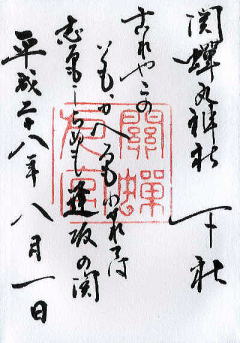 関蟬丸神社 下社
これやこの
も かへるも わかれては
志るもしらぬも 逢坂の関
平成二十八年 八月一日
關蟬